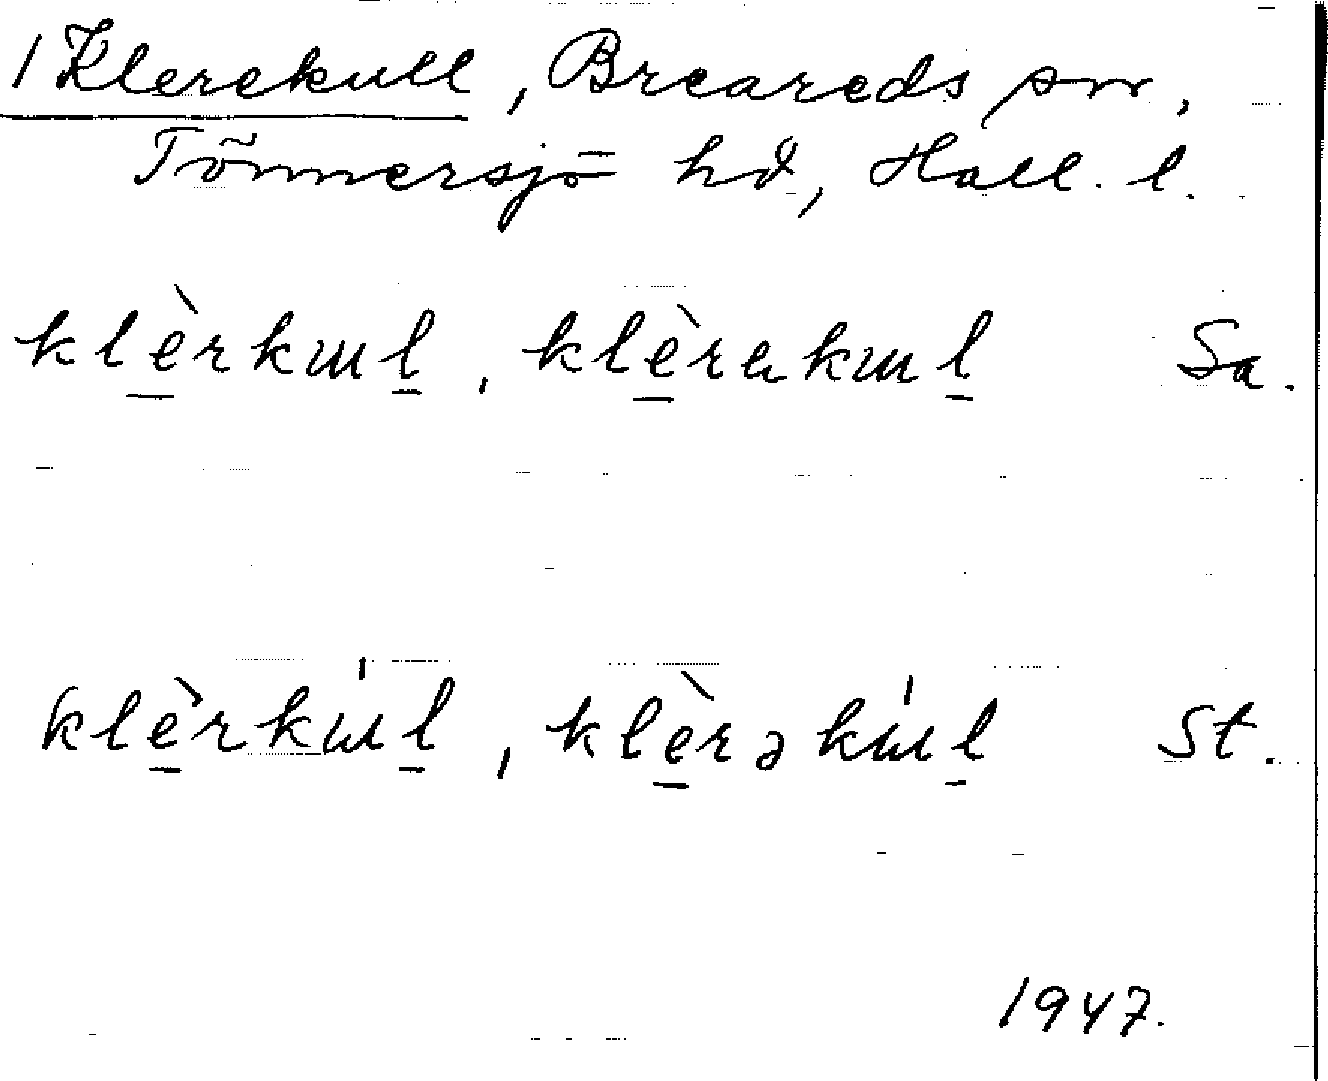 1 Klerekull, Breareds sn,
Tönnersjö hd, Hall. l.
klèrkɯl, klèrəkɯl Sa.
klèrkɯ́l, klèrəkɯ́l St.
1947.